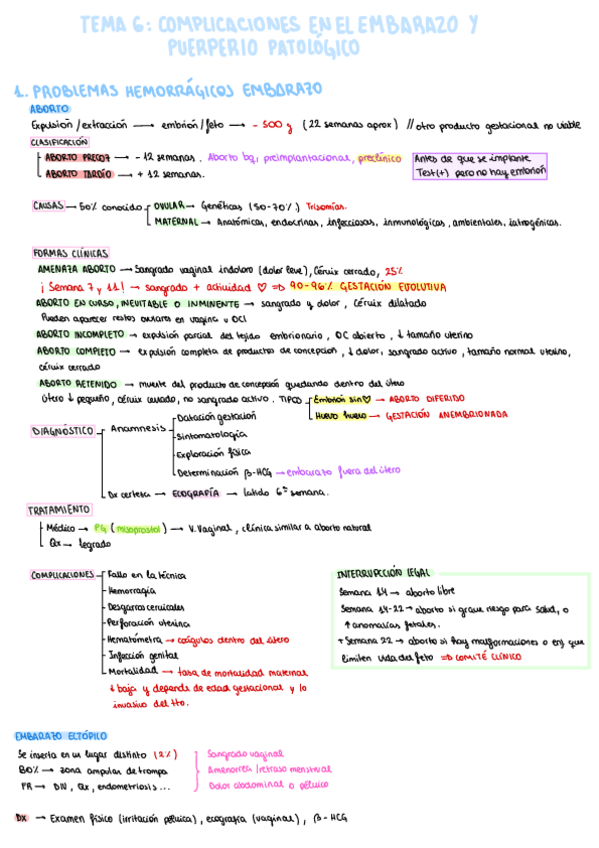 TEMA 6: COMPLICACIONES EN EL EMBARAZO Y
PUERPERIO PATOLÓGICO
1. PROBLEMAS HEMORRÁGICOS EMBARAZO
ABORTO
Expulsión/extracción → embrión/feto → - 500 g (22 semanas aprox) // otro producto gestacional no viable
CLASIFICACIÓN
ABORTO PRECOZ → - 12 semanas. Aborto bq, preimplantacional, preclínico
ABORTO TARDÍO → + 12 semanas.
Antes de que se implante
Test(+) pero no hay embrión
CAUSAS → 50% conocido
OVULAR → Genéticas (50-70%) Trisomías.
MATERNAL → Anatómicas, endocrinas, infecciosas, inmunológicas, ambientales, iatrogénicas.
FORMAS CLÍNICAS
AMENAZA ABORTO → Sangrado vaginal indoloro (dolor leve), cérvix cerrado, 25%
¡Semana 7 y 11! → sangrado + actividad ♡ ⇒ 90-96% GESTACIÓN EVOLUTIVA
ABORTO EN CURSO, INEVITABLE O INMINENTE → sangrado y dolor, cérvix dilatado
Pueden aparecer restos ovulares en vagina u OCI
ABORTO INCOMPLETO → expulsión parcial del tejido embrionario, OC abierto, ↓ tamaño uterino
ABORTO COMPLETO → expulsión completa de productos de concepción, ↓ dolor, sangrado activo, tamaño normal uterino,
cérvix cerrado
ABORTO RETENIDO → muerte del producto de concepción quedando dentro del útero
Útero ↓ pequeño, cérvix cerrado, no sangrado activo. TIPOS
Embrión sin ♡ → ABORTO DIFERIDO
Huevo huero → GESTACIÓN ANEMBRIONADA
DIAGNÓSTICO
Anamnesis
Datación gestación
Sintomatología
Exploración física
Determinación β-HCG → embarazo fuera del útero
Dx certeza → ECOGRAFÍA → latido 6ª semana.
TRATAMIENTO
Médico → PG (misoprostol) → V. Vaginal, clínica similar a aborto natural
Qx → legrado
COMPLICACIONES
Fallo en la técnica
Hemorragia
Desgarros cervicales
Perforación uterina
Hematómetra → coágulos dentro del útero
Infección genital
Mortalidad → tasa de mortalidad maternal
↓ baja y depende de edad gestacional y lo
invasivo del tto.
INTERRUPCCIÓN LEGAL
Semana 14 → aborto libre
Semana 14-22 → aborto si grave riesgo para salud, o
↑ anomalías fetales.
+ Semana 22 → aborto si hay malformaciones o enf que
limiten vida del feto ⇒ COMITÉ CLÍNICO
EMBARAZO ECTÓPICO
Se inserta en un lugar distinto (2%)
80% → zona ampular de trompa
FR → DIU, Qx, endometriosis...
Sangrado vaginal
Amenorrea/retraso menstrual
Dolor abdominal o pélvico
DX → Examen físico (irritación pélvica), ecografía (vaginal), β-HCG